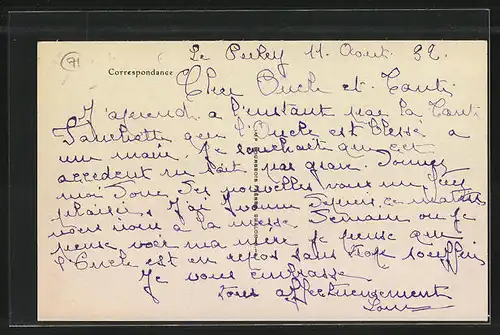 71
Le Perey 11 Aout 32.
Correspondance
Cher Oncle et Tante
J'aprend a l'instant par la Tante
Fanchette que l'Oncle est blessé a
une main. Je souhait que cet
accedent ne soit pas grave. Donnez
moi donc des nouvelles vous me ferez
plaisir. J'ai Yvonne depuis ce matin
nous irons a la messe Demain ou je
pense voir ma mère je pense que
l'Oncle est en repos sans trop souffrir
Je vous embrasse
tous affectueusement